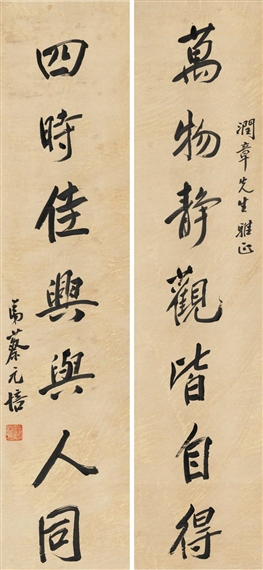 潤章先生雅正
萬物静觀皆自得
四時佳興與人同
蔡元培